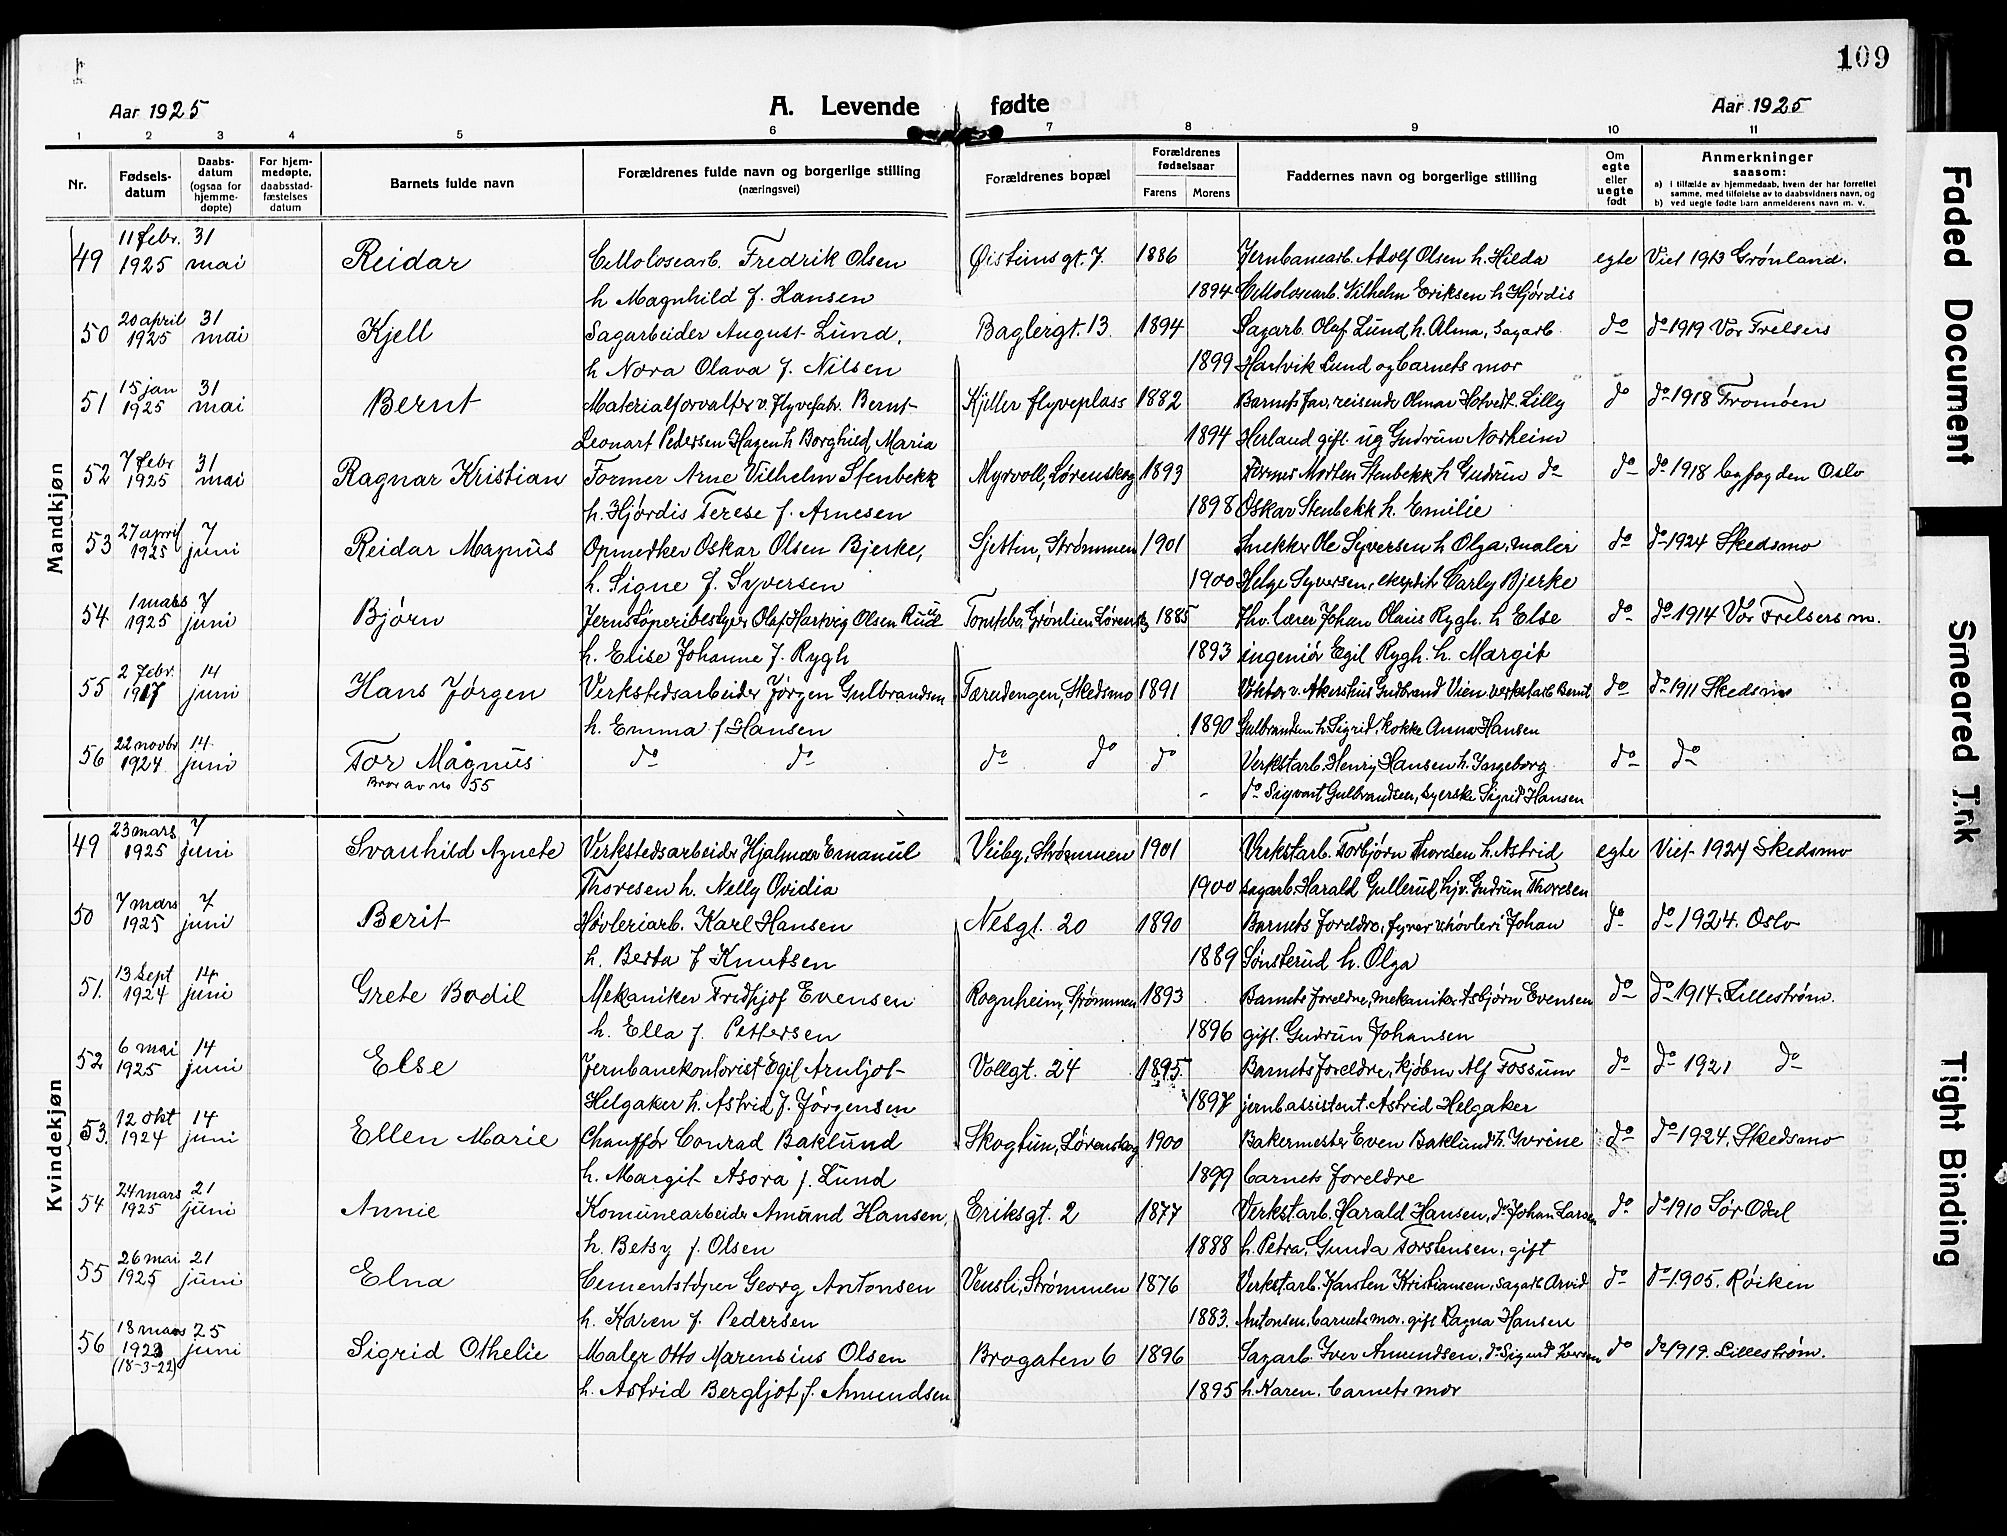 109
Aar 1925 A. Levende fødte Aar 1925
1 2 3 4 5 6 7 8 9 10 11
Nr. Fødsels-datum Daabs-datum (ogsaa for hjemme-døpte) For hjem-medøpte, daabsstad-fæstelses datum Barnets fulde navn Forældrenes fulde navn og borgerlige stilling (næringsvei) Forældrenes bopæl Forældrenes fødselsaar Farens Morens Faddernes navn og borgerlige stilling Om egte eller uegte født Anmerkninger saasom:
a) i tilfælde av hjemmedaab, hvem der har forrettet samme, med tilføielse av to daabsvidners navn, og
b) ved uegte fødte barn anmelderens navn m. v.
Mandkjøn
49 11 febr. 1925 31 mai Reidar Cellolosearb. Fredrik Olsen Øisteinsgt. 7 1886 Jernbanearb. Adolf Olsen h. Hilda egte Viet 1913 Grønland.
h Magnhild f. Hansen 1894 Cellolosearb. Vilhelm Eriksen h Hjørdis
50 20 april 1925 31 mai Kjell Sagarbeider August Lund, Baglergt. 13. 1894 Sagarb. Olaf Lund h. Alma, sagarb. do do 1919 Vor Frelsers
h Nora Olava f. Nilsen 1899 Hartvik Lund og barnets mor
51 15 jan 1925 31 mai Bernt Materialforvalter v. flyvefabr. Bernt Kjeller flyveplass 1882 Barnets far, reisende Olmar Hotvedt. Lilly do do 1918 Tromøen
Leonart Pedersen Hagen h Borghild Maria 1894 Herland gift. ug Gudrun Norheim
52 7 febr 1925 31 mai Ragnar Kristian Former Arne Vilhelm Stenbekk Myrvoll, Lørenskog 1893 Former Morten Stenbekk h Gudrun do do do 1918 byfogden Oslo
h. Hjørdis Terese f. Arnesen 1898 Oskar Stenbekk h. Emilie
53 27 april 1925 7 juni Reidar Magnus Opmerker Oskar Olsen Bjerke, Sjetten, Strømmen 1901 Snekker Ole Syversen h Olga, maler do do 1924 Skedsmo
h. Signe f. Syversen 1900 Helge Syversen, ekspditr. Carly Bjerke
54 1 mars 1925 7 juni Bjørn Jernstøperibestyrer Olaf Hartvig Olsen Ruud Grønlien 1885 lærer Johan Olaus Rygh. h Else do do 1914 Vor Frelsers m.
h. Elise Johanne f. Rygh 1893 ingeniør Egil Rygh. h. Margit
55 2 febr. 1917 14 juni Hans Jørgen Verkstedsarbeider Jørgen Gulbrandsen Tærudengen, Skedsmo 1891 v. Akershus Gudbrand Vien verkstarb Bernt do do 1911 Skedsmo
h. Emma f Hansen 1890 Gulbrandsen h. Sigrid, kokke Anna Hansen
56 22 novbr 1924 14 juni Tor Magnus do do do do do Verkstarb. Henry Hansen h. Ingeborg do do
Bror av no 55 do Sigvart Gulbrandsen, syerske Sigrid Hansen
Kvindekjøn
49 23 mars 1925 7 juni Svanhild Agnete Verkstedsarbeider Hjalmar Emanuel Veiby, Strømmen 1901 Verkstarb. Torbjørn Thoresen h. Astrid egte Viet 1924 Skedsmo
Thoresen h. Nelly Ovidia 1900 sagarb. Harald Gullerud, hjv. Gudrun Thoresen
50 7 mars 1925 7 juni Berit Høvleriarb. Karl Hansen Nesgt. 20 1890 Barnets foreldre, fyrer v. høvleri Johan do do 1924. Oslo
h. Berta f Knutsen 1889 Sønsterud h. Olga
51. 13 Sept 1924 14 juni Grete Bodil Mekaniker Fridtjof Evensen Rognheim, Strømmen 1893 Barnets foreldre, mekaniker Asbjørn Evensen do do 1914. Lillestrøm.
h. Ella f. Pettersen 1896 gift. Gudrun Johansen
52 6 mai 1925 14 juni Else Jernbanekontorist Egil Arnljot Vollgt. 24 1895 Barnets foreldre, kjøbm Alf Fossum do do 1921 do
Helgaker h. Astrid f. Jørgensen 1897 jernbassistent Astrid Helgaker
53. 12 okt 1924 14 juni Ellen Marie Chauffør Conrad Baklund Skogtun, Lørenskog 1900 Bakermester Even Baklund h. Yvrine do do 1924, Skedsmo
h. Margit Asora f. Lund 1899 barnets foreldre
54 24 mars 1925 21 juni Annie Komunearbeider Amund Hansen, Eriksgt. 2 1877 Verkstarb. Harald Hansen, do Johan Larsen do do 1910 Sør Odal
h. Betsy f. Olsen 1888 h. Petra, Gunda Torstensen, gift
55 26 mai 1925 21 juni Elna Cementstøper Georg Antonsen Vensli, Strømmen 1876 Verkstarb. Karsten Kristiansen, sagarb Arvid do do 1905. Røiken
h. Karen f. Pedersen 1883. Antonsen, barnets mor. gift Ragna Hansen
56 18 mars 1923 (18-3-22) 25 juni Sigrid Othelie Maler Otto Marensius Olsen Brogaten 6 1896 Sagarb. Iver Amundsen, do Sigurd Iversen do do 1919. Lillestrøm.
h. Astrid Bergljot f. Amundsen 1895 h. Karen. barnets mor
Faded Document
Smeared Ink
Tight Binding